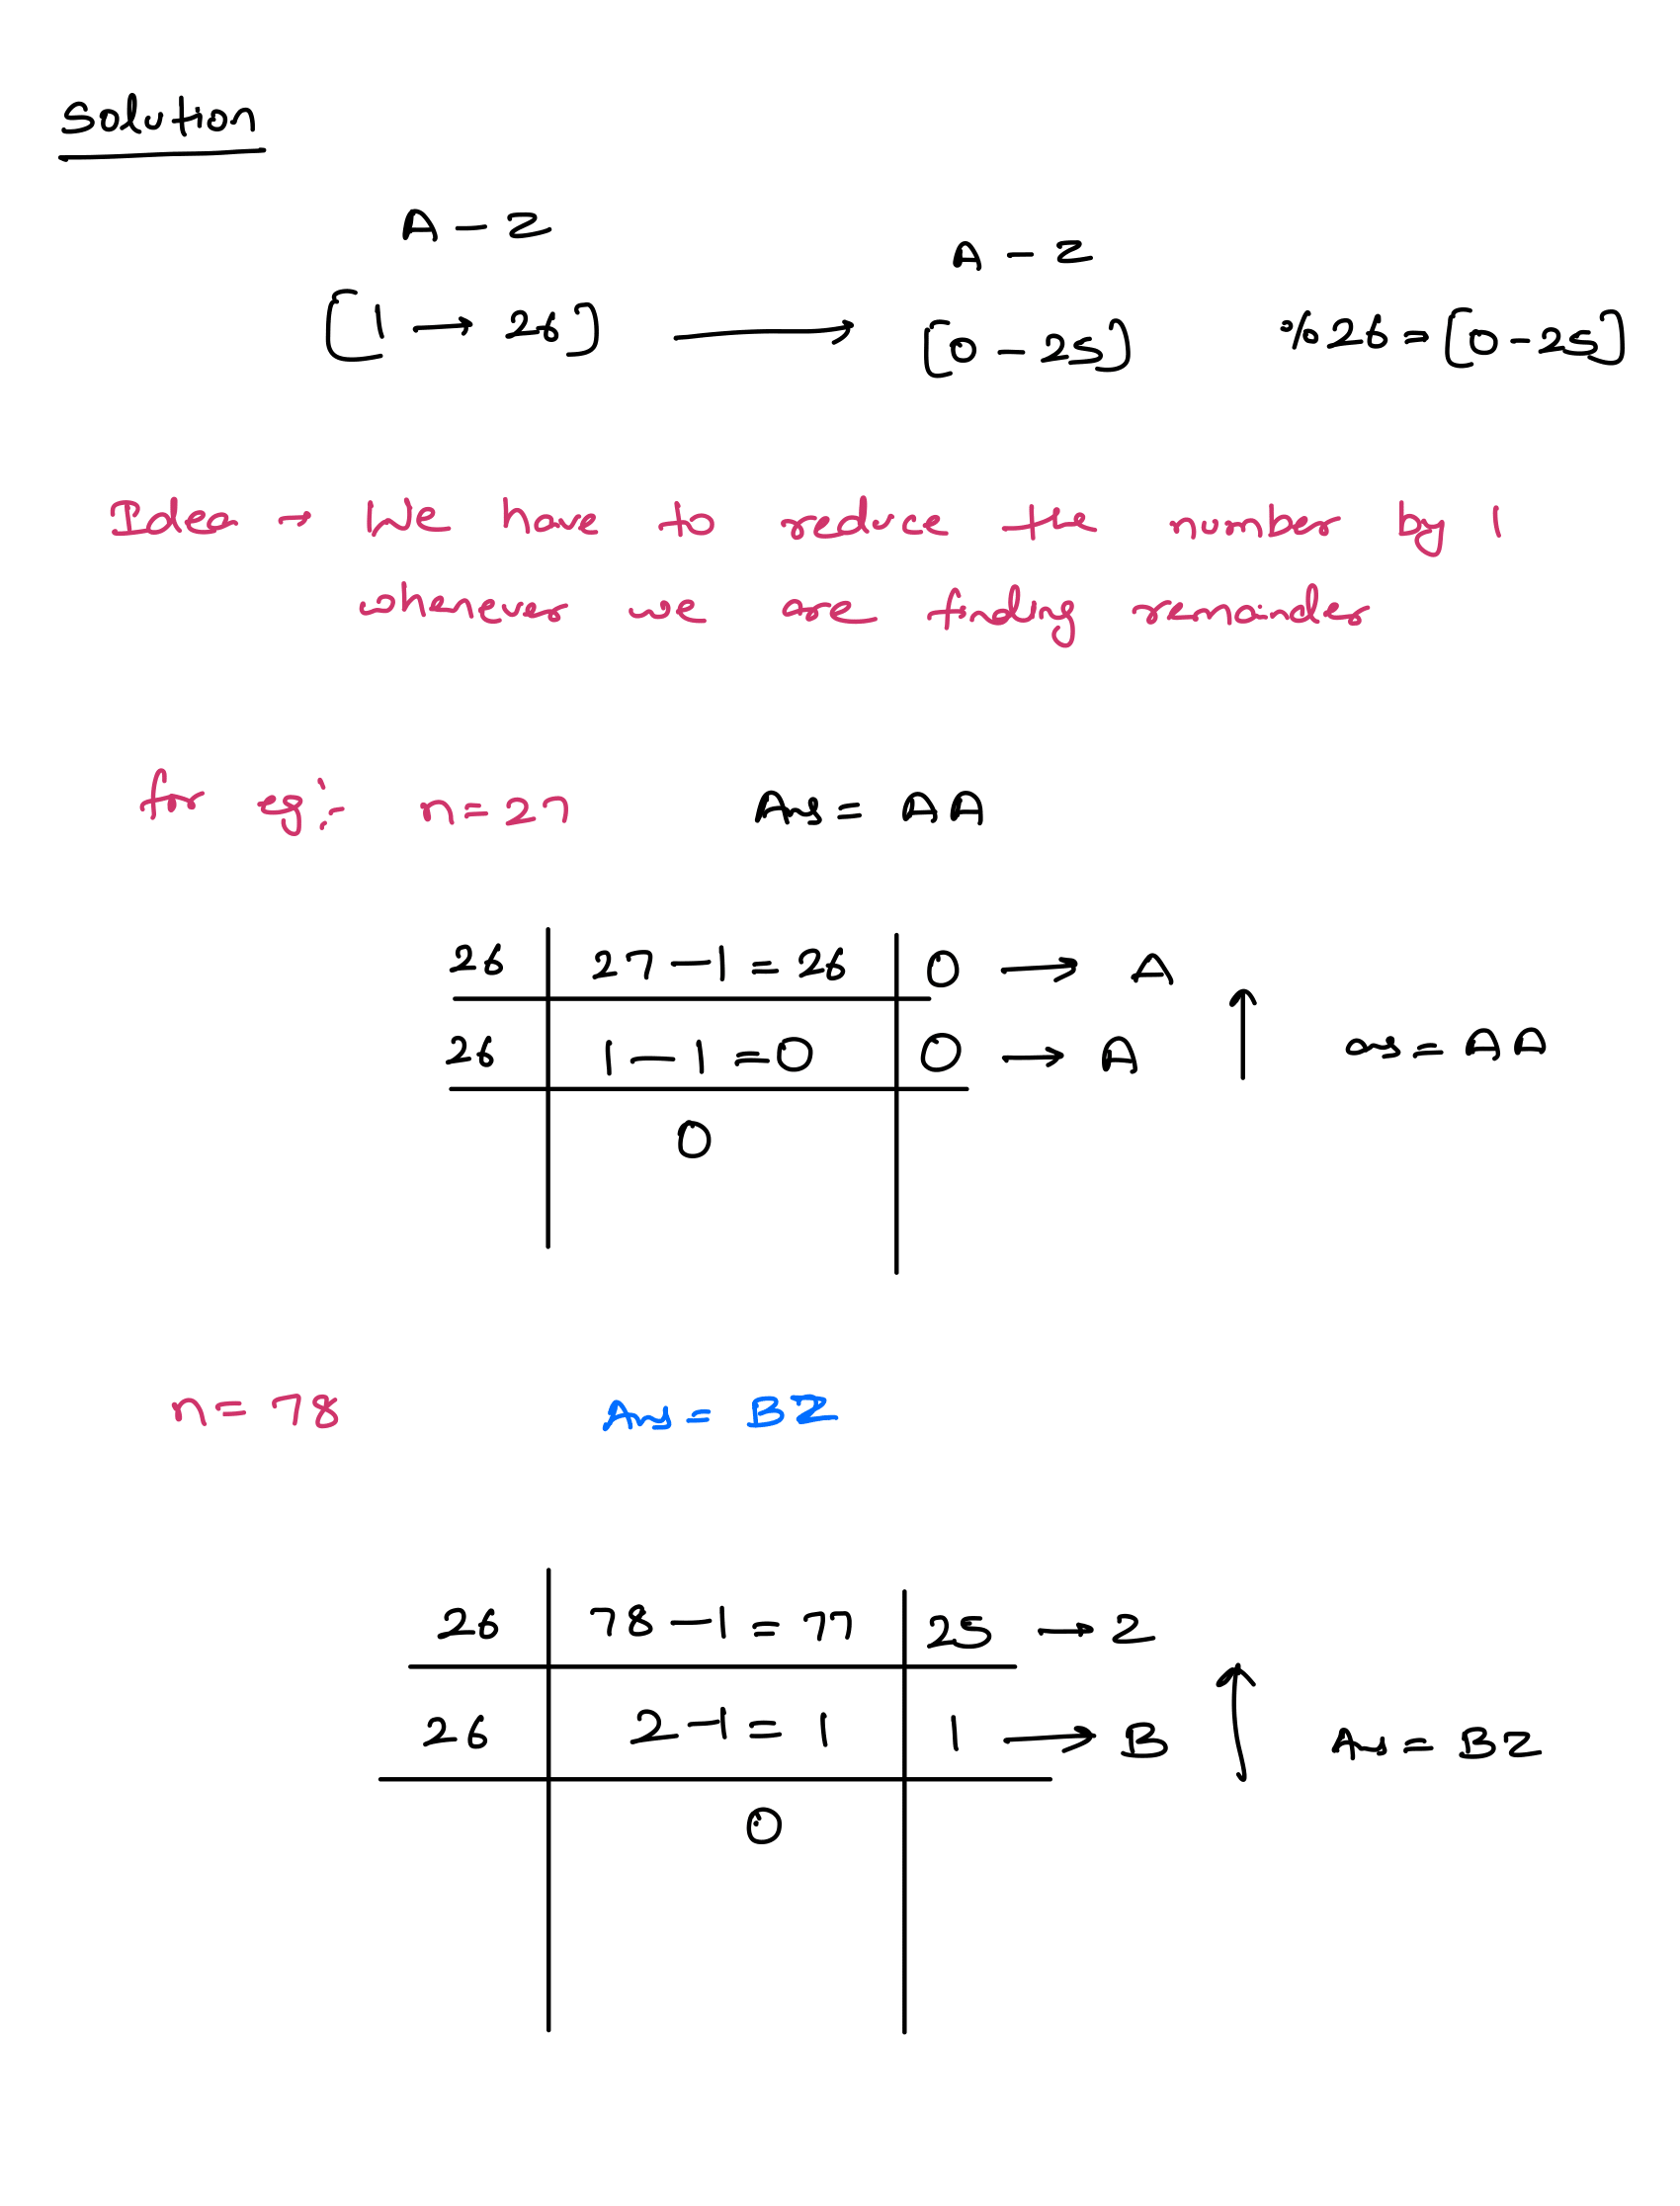 Solution
A - Z
[1 → 26] ⟶ A - Z [0 - 25] % 26 = [0 - 25]
Idea → We have to reduce the number by 1
whenever we are finding remainder
for eg:- n=27 Ans = AA
26 | 27 - 1 = 26 | 0 → A
26 | 1 - 1 = 0 | 0 → A ↑ ans = AA
0
n = 78 Ans = BZ
26 | 78 - 1 = 77 | 25 → Z
26 | 2 - 1 = 1 | 1 → B ↑ Ans = BZ
0